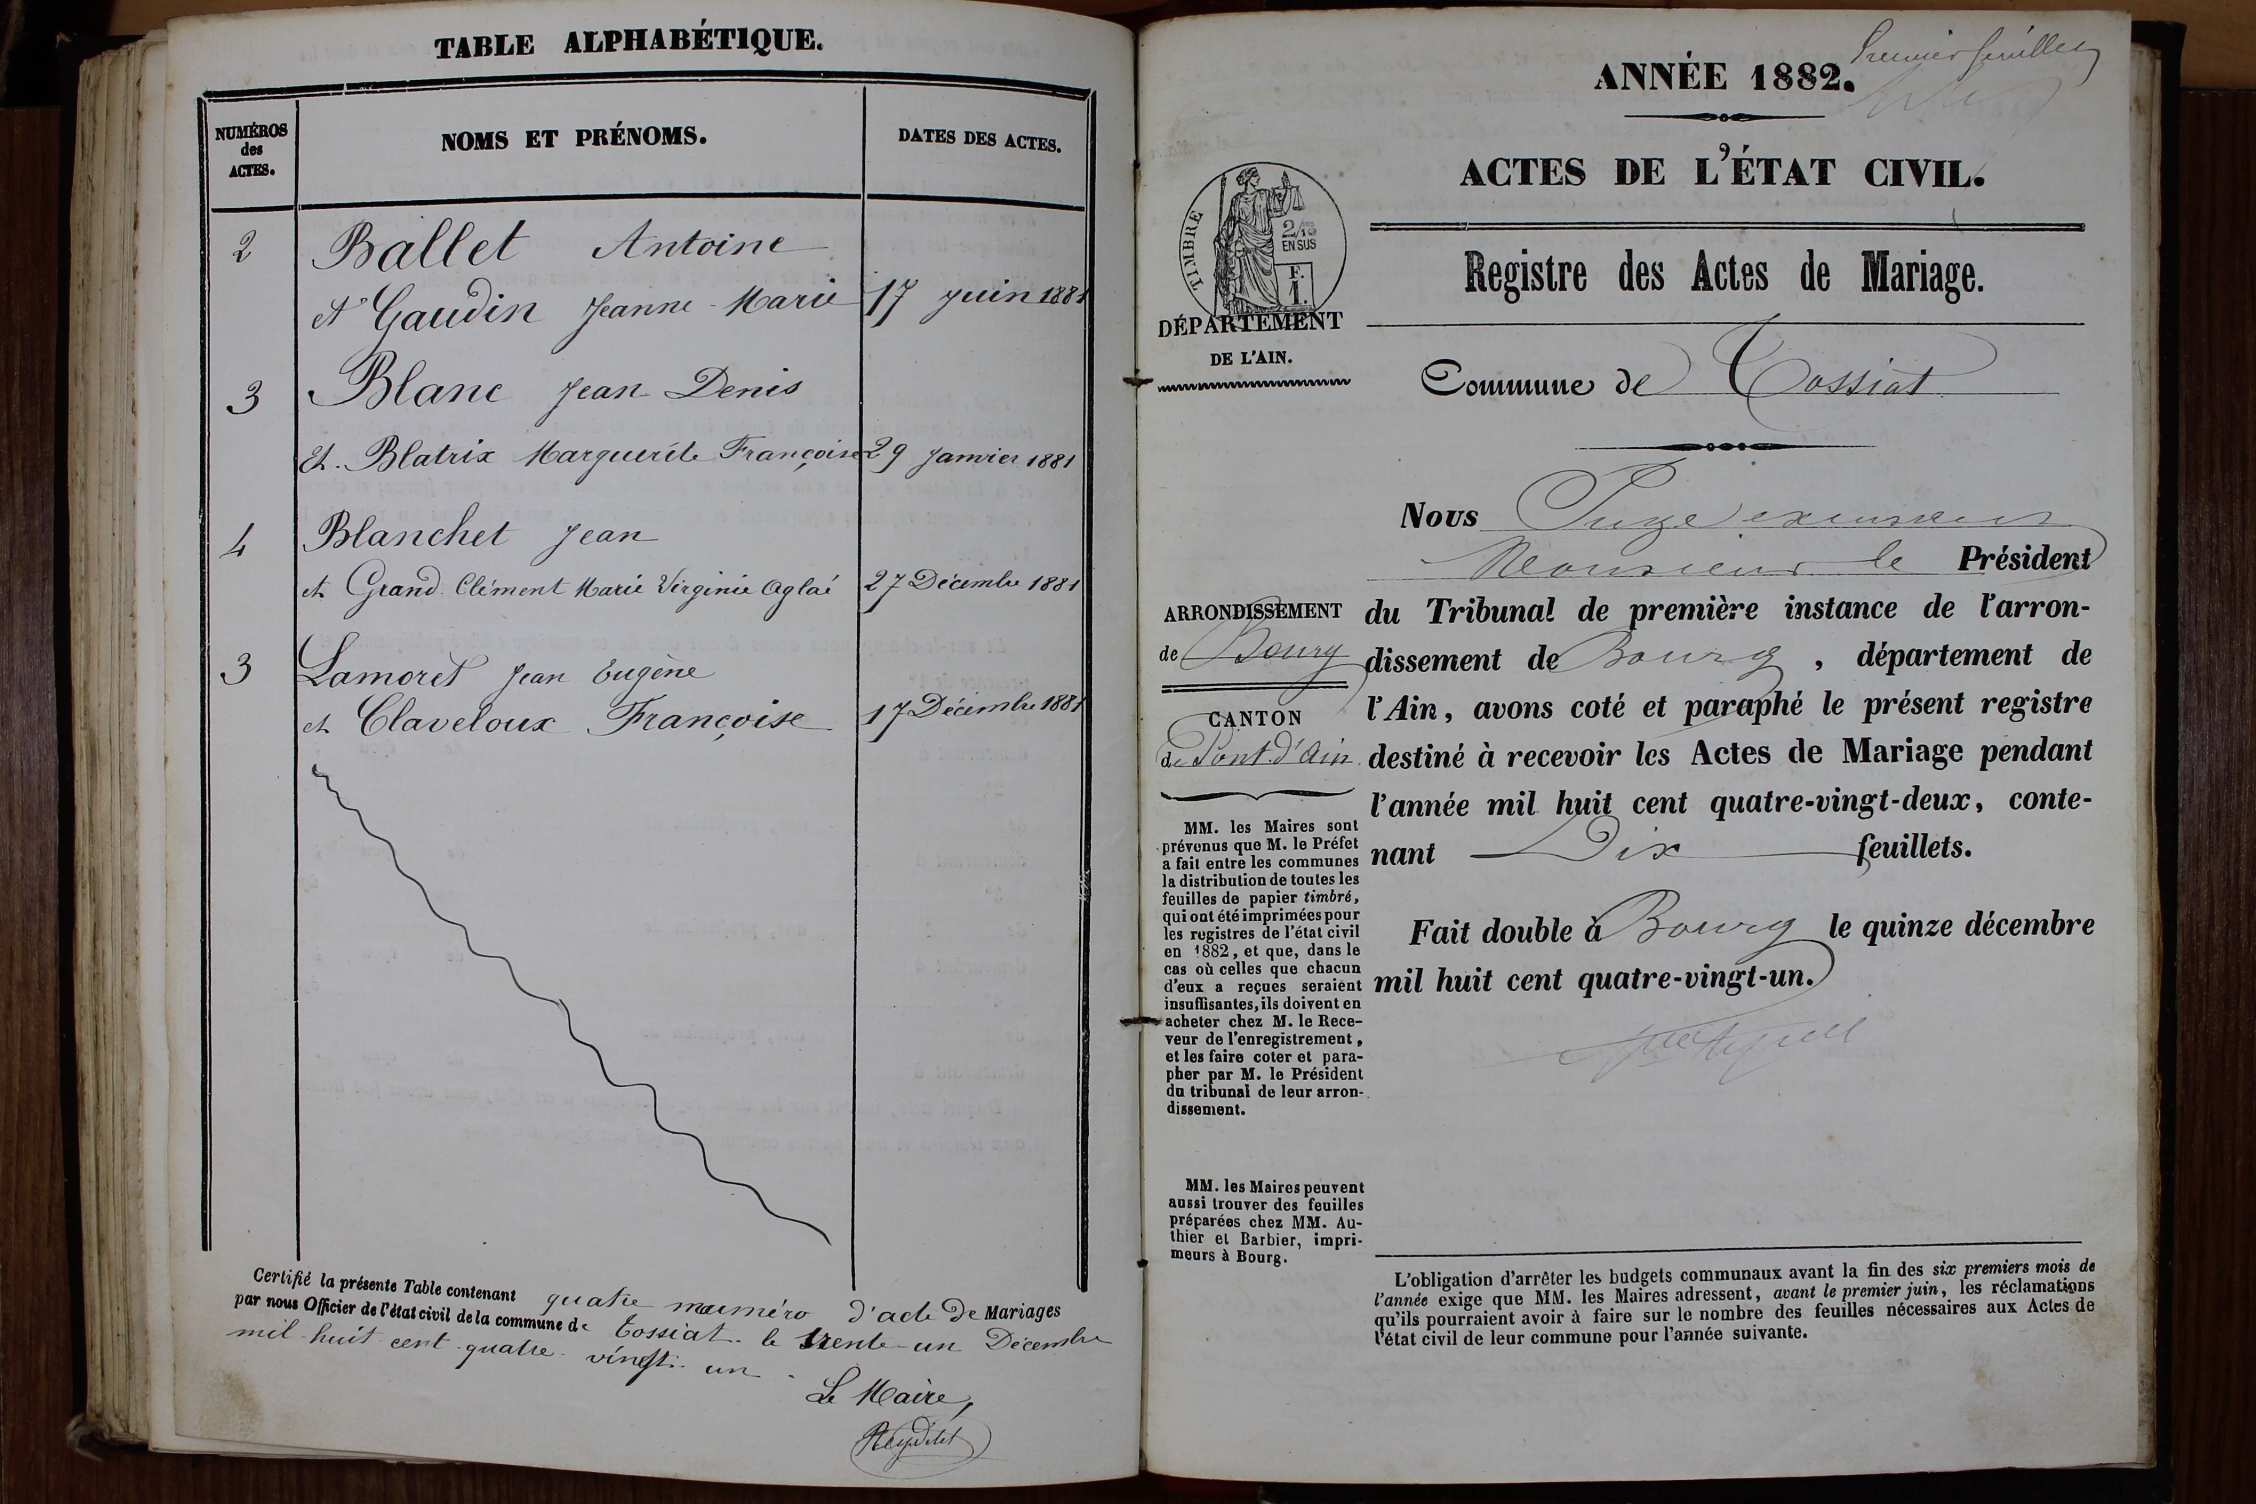 TABLE ALPHABÉTIQUE.
NUMÉROS
des
ACTES.
NOMS ET PRÉNOMS.
DATES DES ACTES.
2 Ballet Antoine
et Gaudin Jeanne-Marie 17 Juin 1881
3 Blanc Jean Denis
Et. Blatrix Marguerite Françoise 29 Janvier 1881
4 Blanchet Jean
et Grand-Clément Marie Virginie Aglaé 27 Décembre 1881
3 Lamoret Jean Eugène
et Claveloux Françoise 17 Décembre 1881
Certifié la présente Table contenant quatre numéro d'acte de Mariages
par nous Officier de l'état civil de la commune de Tossiat. le trente-un Décembre
mil-huit cent-quatre-vingt-un.
Le Maire,
Premier feuillet
ANNÉE 1882.
ACTES DE L'ÉTAT CIVIL.
Registre des Actes de Mariage.
TIMBRE
2/10
EN SUS
F.
1.
DÉPARTEMENT
DE L'AIN.
Commune de Tossiat
Nous Juge
Monsieur le Président
du Tribunal de première instance de l'arron-
dissement de Bourg, département de
l'Ain, avons coté et paraphé le présent registre
destiné à recevoir les Actes de Mariage pendant
l'année mil huit cent quatre-vingt-deux, conte-
nant Dix feuillets.
Fait double à Bourg le quinze décembre
mil huit cent quatre-vingt-un.
ARRONDISSEMENT
de Bourg
CANTON
de Pont-d'Ain
MM. les Maires sont
prévenus que M. le Préfet
a fait entre les communes
la distribution de toutes les
feuilles de papier timbré,
qui ont été imprimées pour
les registres de l'état civil
en 1882, et que, dans le
cas où celles que chacun
d'eux a reçues seraient
insuffisantes, ils doivent en
acheter chez M. le Rece-
veur de l'enregistrement,
et les faire coter et para-
pher par M. le Président
du tribunal de leur arron-
dissement.
MM. les Maires peuvent
aussi trouver des feuilles
préparées chez MM. Au-
thier et Barbier, impri-
meurs à Bourg.
L'obligation d'arrêter les budgets communaux avant la fin des six premiers mois de
l'année exige que MM. les Maires adressent, avant le premier juin, les réclamations
qu'ils pourraient avoir à faire sur le nombre des feuilles nécessaires aux Actes de
l'état civil de leur commune pour l'année suivante.